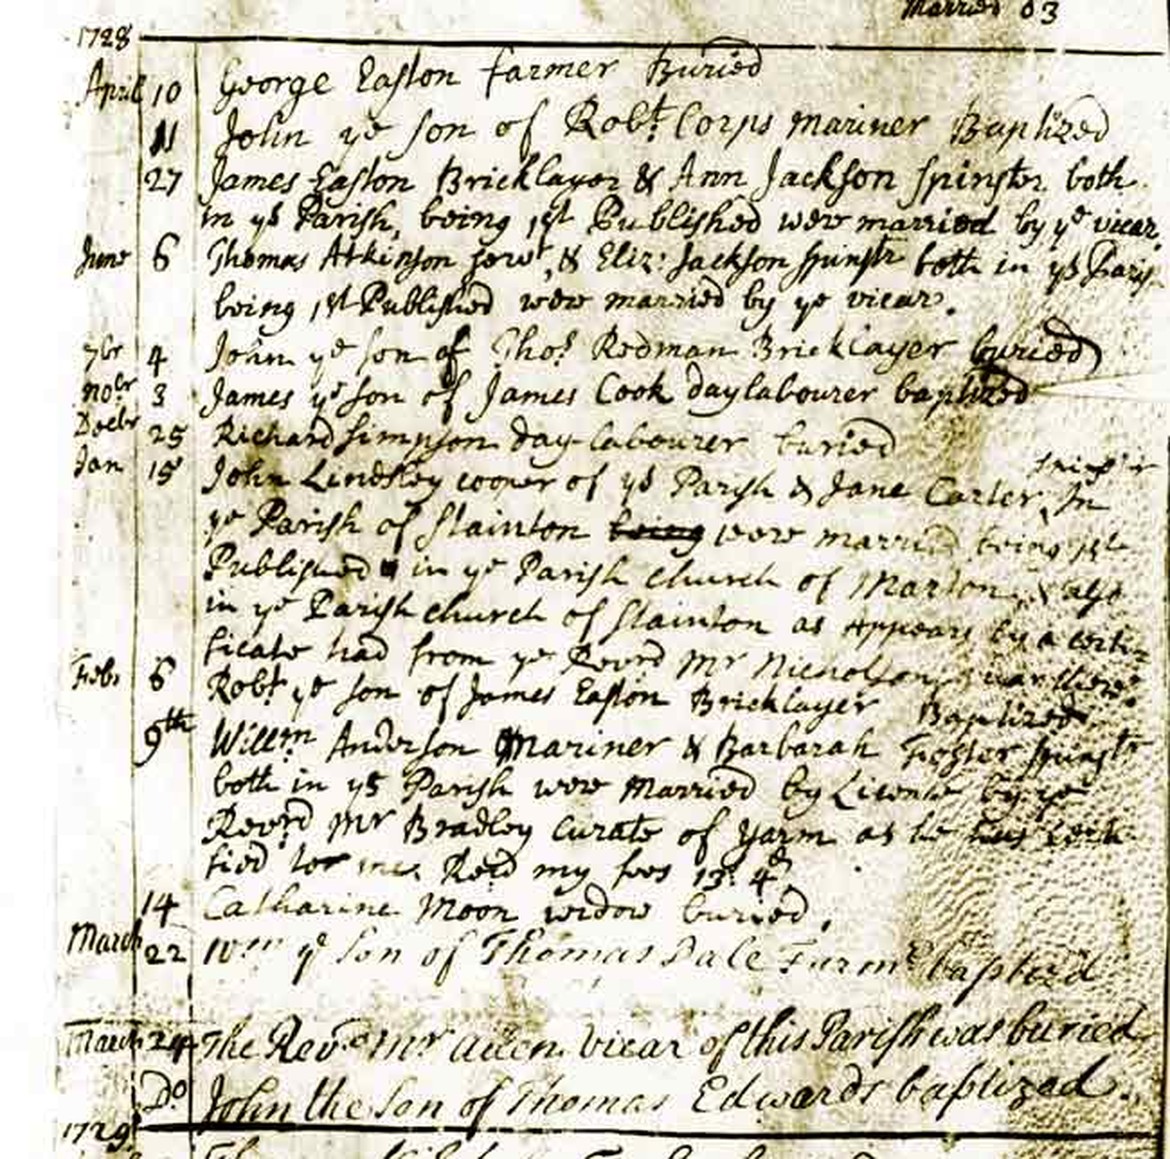 Married 03
1728
April 10 George Easton farmer Buried
11 John ye son of Robt. Corps Mariner Baptized
27 James Easton Bricklayer & Ann Jackson Spinster both
in ys Parish, being 1st Published were married by ye vicar.
June 6 Thomas Atkinson servt, & Eliz: Jackson Spinstr both in ys Parish
being 1st Published were married by ye vicar.
7br 4 John ye son of Thos. Redman Bricklayer buried
Nobr 3 James ye son of James Cook daylabourer baptized
Decbr 25 Richard Simpson day-labourer buried
Jan 15 John Lindsley cooper of ys Parish & Jane Carter, In
ye Parish of Stainton being were married being 1st
Published in ye Parish Church of Marton, & also
in ye Parish church of Stainton as Appears by a certi-
ficate had from ye Revrd Mr Nicholson
Febr 6 Robt ye son of James Easton Bricklayer Baptized
9th Willm Anderson Mariner & Barbarah Foster Spinstr
both in ys Parish were Married by Licence by ye
Revrd Mr Bradley Curate of Yarm as he has certi
fied to me. Recd my fees 13: 4d
14 Catharine Moon widow buried,
March 22 Wm ye Son of Thomas Dale Farmr baptizd
March 24 The Revd. Mr vicar of this Parish was buried
Do John the Son of Thomas Edwards baptized.
1729